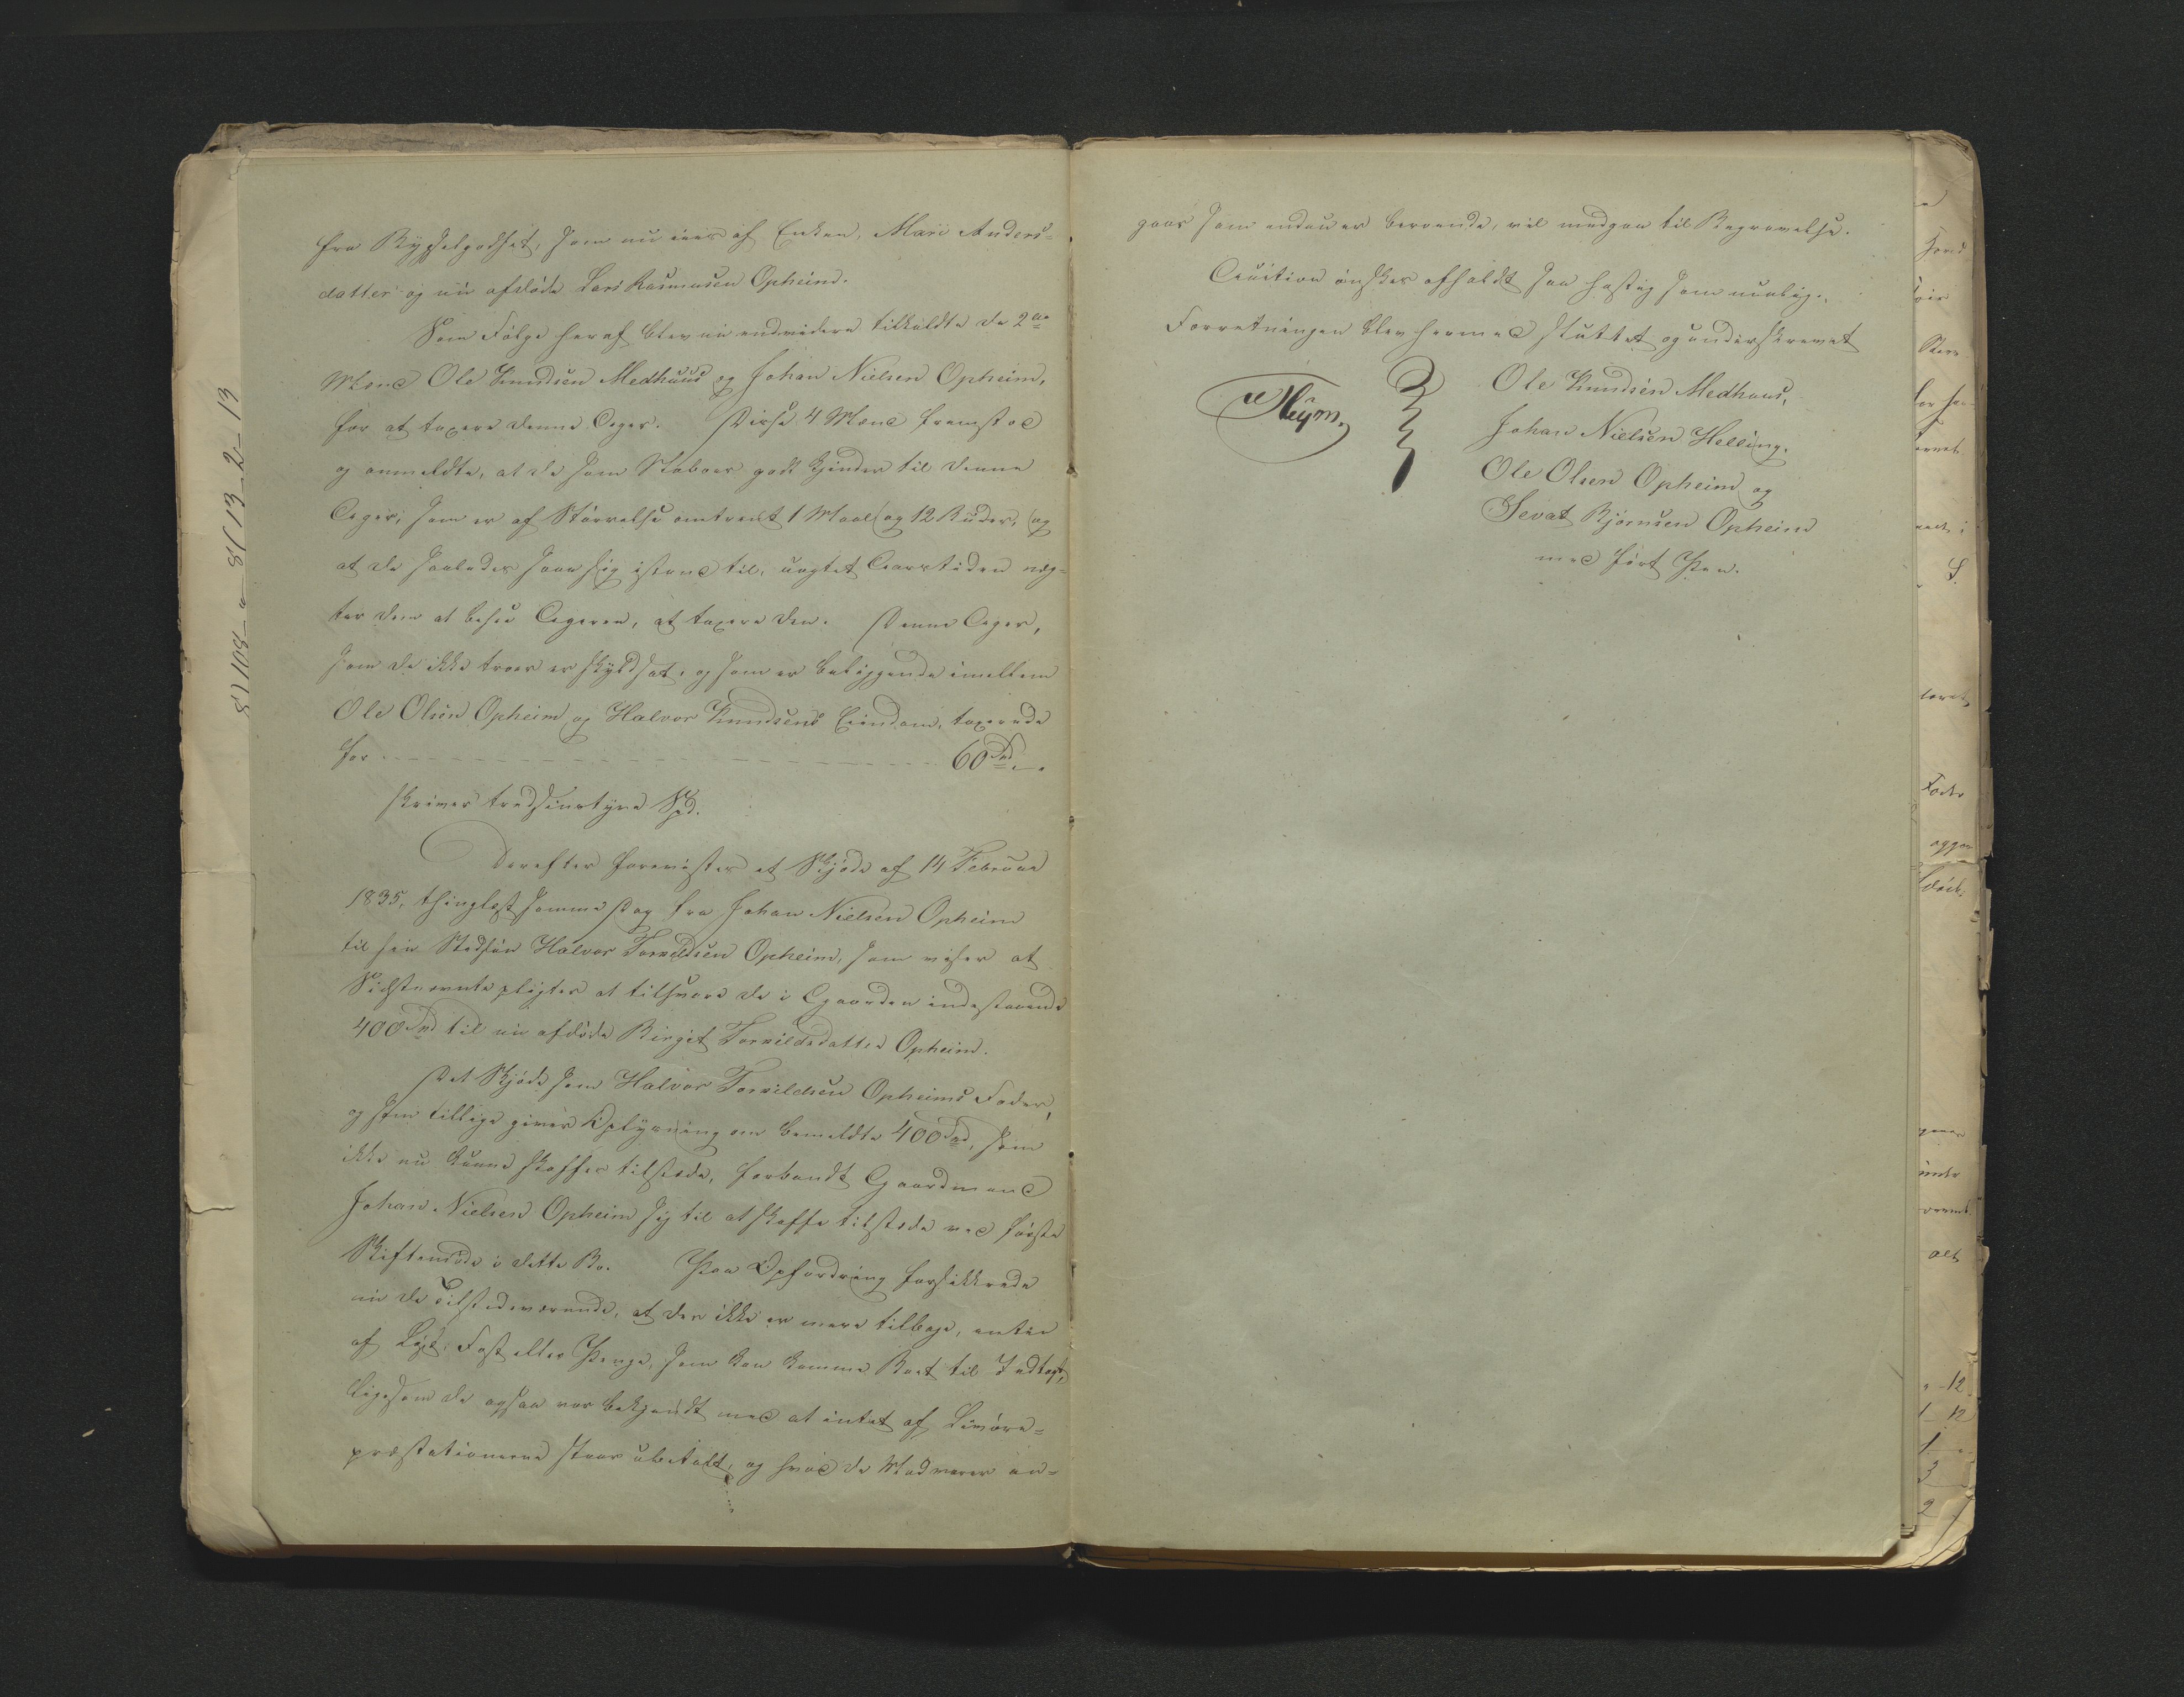 fra Bygselgodset, som nu eies af Enken, Mari Anders-
datter og nu afdøde Lars Rasmusen Opheim.
Som Følge heraf blev nu endvidere tilkaldte de 2de
Mænd Ole Knudsen Medhuus og Johan Nielsen Opheim,
for at taxere denne Ager. Disse 4 Mænd fremstod
og anmeldte, at de som Naboer godt kjender til denne
Ager, som er af Størrelse omtrent 1 Maal og 12 Ruder, og
at de saaledes saae sig istand til, uagtet Aarstiden næg-
ter dem at besee Ageren, at taxere den. Denne Ager,
som de ikke troer er skyldsat, og som er beliggende imellem
Ole Olsen Opheim og Halvor Knudsens Eiendom, taxerede
for 60 Spd. „
skriver tredsindstyve Spd.
Derefter forevistes et Skjøde af 14 Februar
1835, thinglæst samme Dag fra Johan Nielsen Opheim
til sin Stedsøn Halvor Torvildsen Opheim, som viser at
Sidstnævnte pligter at tilsvare de i Gaarden indestaaende
400 Spd til nu afdøde Birgit Torvildsdatter Opheim.
Det Skjøde som Halvor Torvildsen Opheims Fader,
og som tillige giver Oplysning om bemeldte 400 Spd, som
ikke nu kunne skaffes tilstede, forbandt Gaardmand
Johan Nielsen Opheim sig til at skaffe tilstede ved første
Skiftemøde i dette Bo. Paa Opfordring forsikkrede
nu de Tilstedeværende, at der ikke er mere tilbage, enten
af Løst, Fast eller Penge, som kan komme Boet til Indtægt,
ligesom de ogsaa var bekjendt med at intet af Livøre-
præstationerne staar ubetalt, og hvad de Madvarer an-
gaar som endnu er beroende, vil medgaa til Begravelse.
Auction ønskes afholdt saa hastig som muligt.
Forretningen blev hermed sluttet og underskrevet
Heÿm.
Ole Knudsen Medhuus,
Johan Nielsen Helling.
Ole Olsen Opheim og
Sevat Bjørnsen Opheim
med ført Pen.
8) 108 - a - 8(13 - 2 - 13